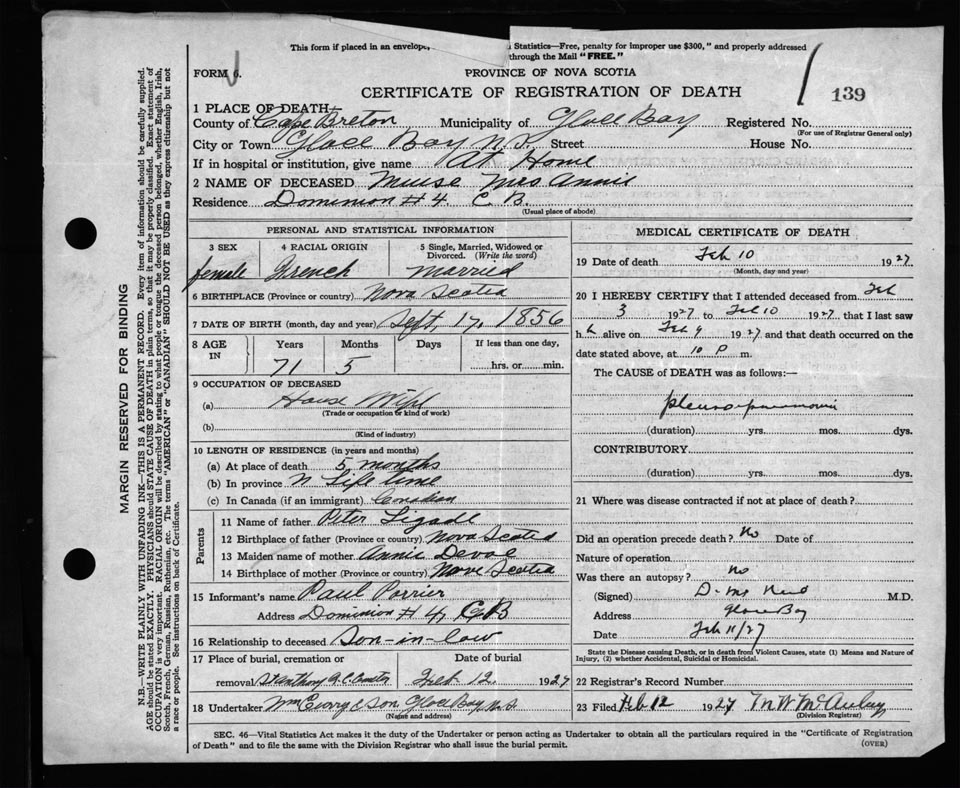 This form if placed in an envelope, Statistics—Free, penalty for improper use $300," and properly addressed
through the Mail "FREE."
FORM 6.
PROVINCE OF NOVA SCOTIA
CERTIFICATE OF REGISTRATION OF DEATH
139
1 PLACE OF DEATH
County of Cape Breton Municipality of Glace Bay Registered No.
(For use of Registrar General only)
City or Town Glace Bay N.S. Street House No.
If in hospital or institution, give name At Home
2 NAME OF DECEASED Muise Mrs Annie
Residence Dominion # 4 C B.
(Usual place of abode)
PERSONAL AND STATISTICAL INFORMATION
3 SEX 4 RACIAL ORIGIN 5 Single, Married, Widowed or
Divorced. (Write the word)
female French Married
6 BIRTHPLACE (Province or country) Nova Scotia
7 DATE OF BIRTH (month, day and year) Sept, 17, 1856
8 AGE IN Years Months Days If less than one day,
71 5 hrs. or min.
9 OCCUPATION OF DECEASED
(a) House Wife
(Trade or occupation or kind of work)
(b)
(Kind of industry)
10 LENGTH OF RESIDENCE (in years and months)
(a) At place of death 5 months
(b) In province Life time
(c) In Canada (if an immigrant) Canadian
Parents
11 Name of father Peter
12 Birthplace of father (Province or country) Nova Scotia
13 Maiden name of mother Annie Devoe
14 Birthplace of mother (Province or country) Nova Scotia
15 Informant's name Paul Porrier
Address Dominion # 4, CB
16 Relationship to deceased Son-in-law
17 Place of burial, cremation or Date of burial
removal St Anthony R.C. Feb 12. 1927
18 Undertaker Wm Curry & Son Glace Bay N.S
(Name and address)
MEDICAL CERTIFICATE OF DEATH
19 Date of death Feb 10 1927
(Month, day and year)
20 I HEREBY CERTIFY that I attended deceased from Feb
3 1927 to Feb 10 1927 that I last saw
h alive on Feb 9 1927 and that death occurred on the
date stated above, at 10 P m.
The CAUSE of DEATH was as follows:—
pleuro-pneumonia
(duration) yrs. mos. dys.
CONTRIBUTORY
(duration) yrs. mos. dys.
21 Where was disease contracted if not at place of death?
Did an operation precede death? No Date of
Nature of operation
Was there an autopsy? no
(Signed) M.D.
Address Glace Bay
Date Feb 11/27
State the Disease causing Death, or in death from Violent Causes, state (1) Means and Nature of
Injury, (2) whether Accidental, Suicidal or Homicidal.
22 Registrar's Record Number
23 Filed Feb 12 1927 M W McAulay
(Division Registrar)
SEC. 46—Vital Statistics Act makes it the duty of the Undertaker or person acting as Undertaker to obtain all the particulars required in the "Certificate of Registration
of Death" and to file the same with the Division Registrar who shall issue the burial permit.
(OVER)
MARGIN RESERVED FOR BINDING
N.B.—WRITE PLAINLY WITH UNFADING INK—THIS IS A PERMANENT RECORD. Every item of information should be carefully supplied.
AGE should be stated EXACTLY. PHYSICIANS should STATE CAUSE OF DEATH in plain terms, so that it may be properly classified. Exact statement of
OCCUPATION is very important. RACIAL ORIGIN will be described by stating to what people or tongue the deceased person belonged, whether English, Irish,
Scotch, French, German, Russian, Ruthenian, etc. The terms "AMERICAN" or "CANADIAN" SHOULD NOT BE USED as they express citizenship but not
a race or people. See instructions on back of Certificate.